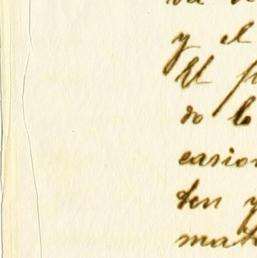 y el
El p
do b
casion
ten y
mat